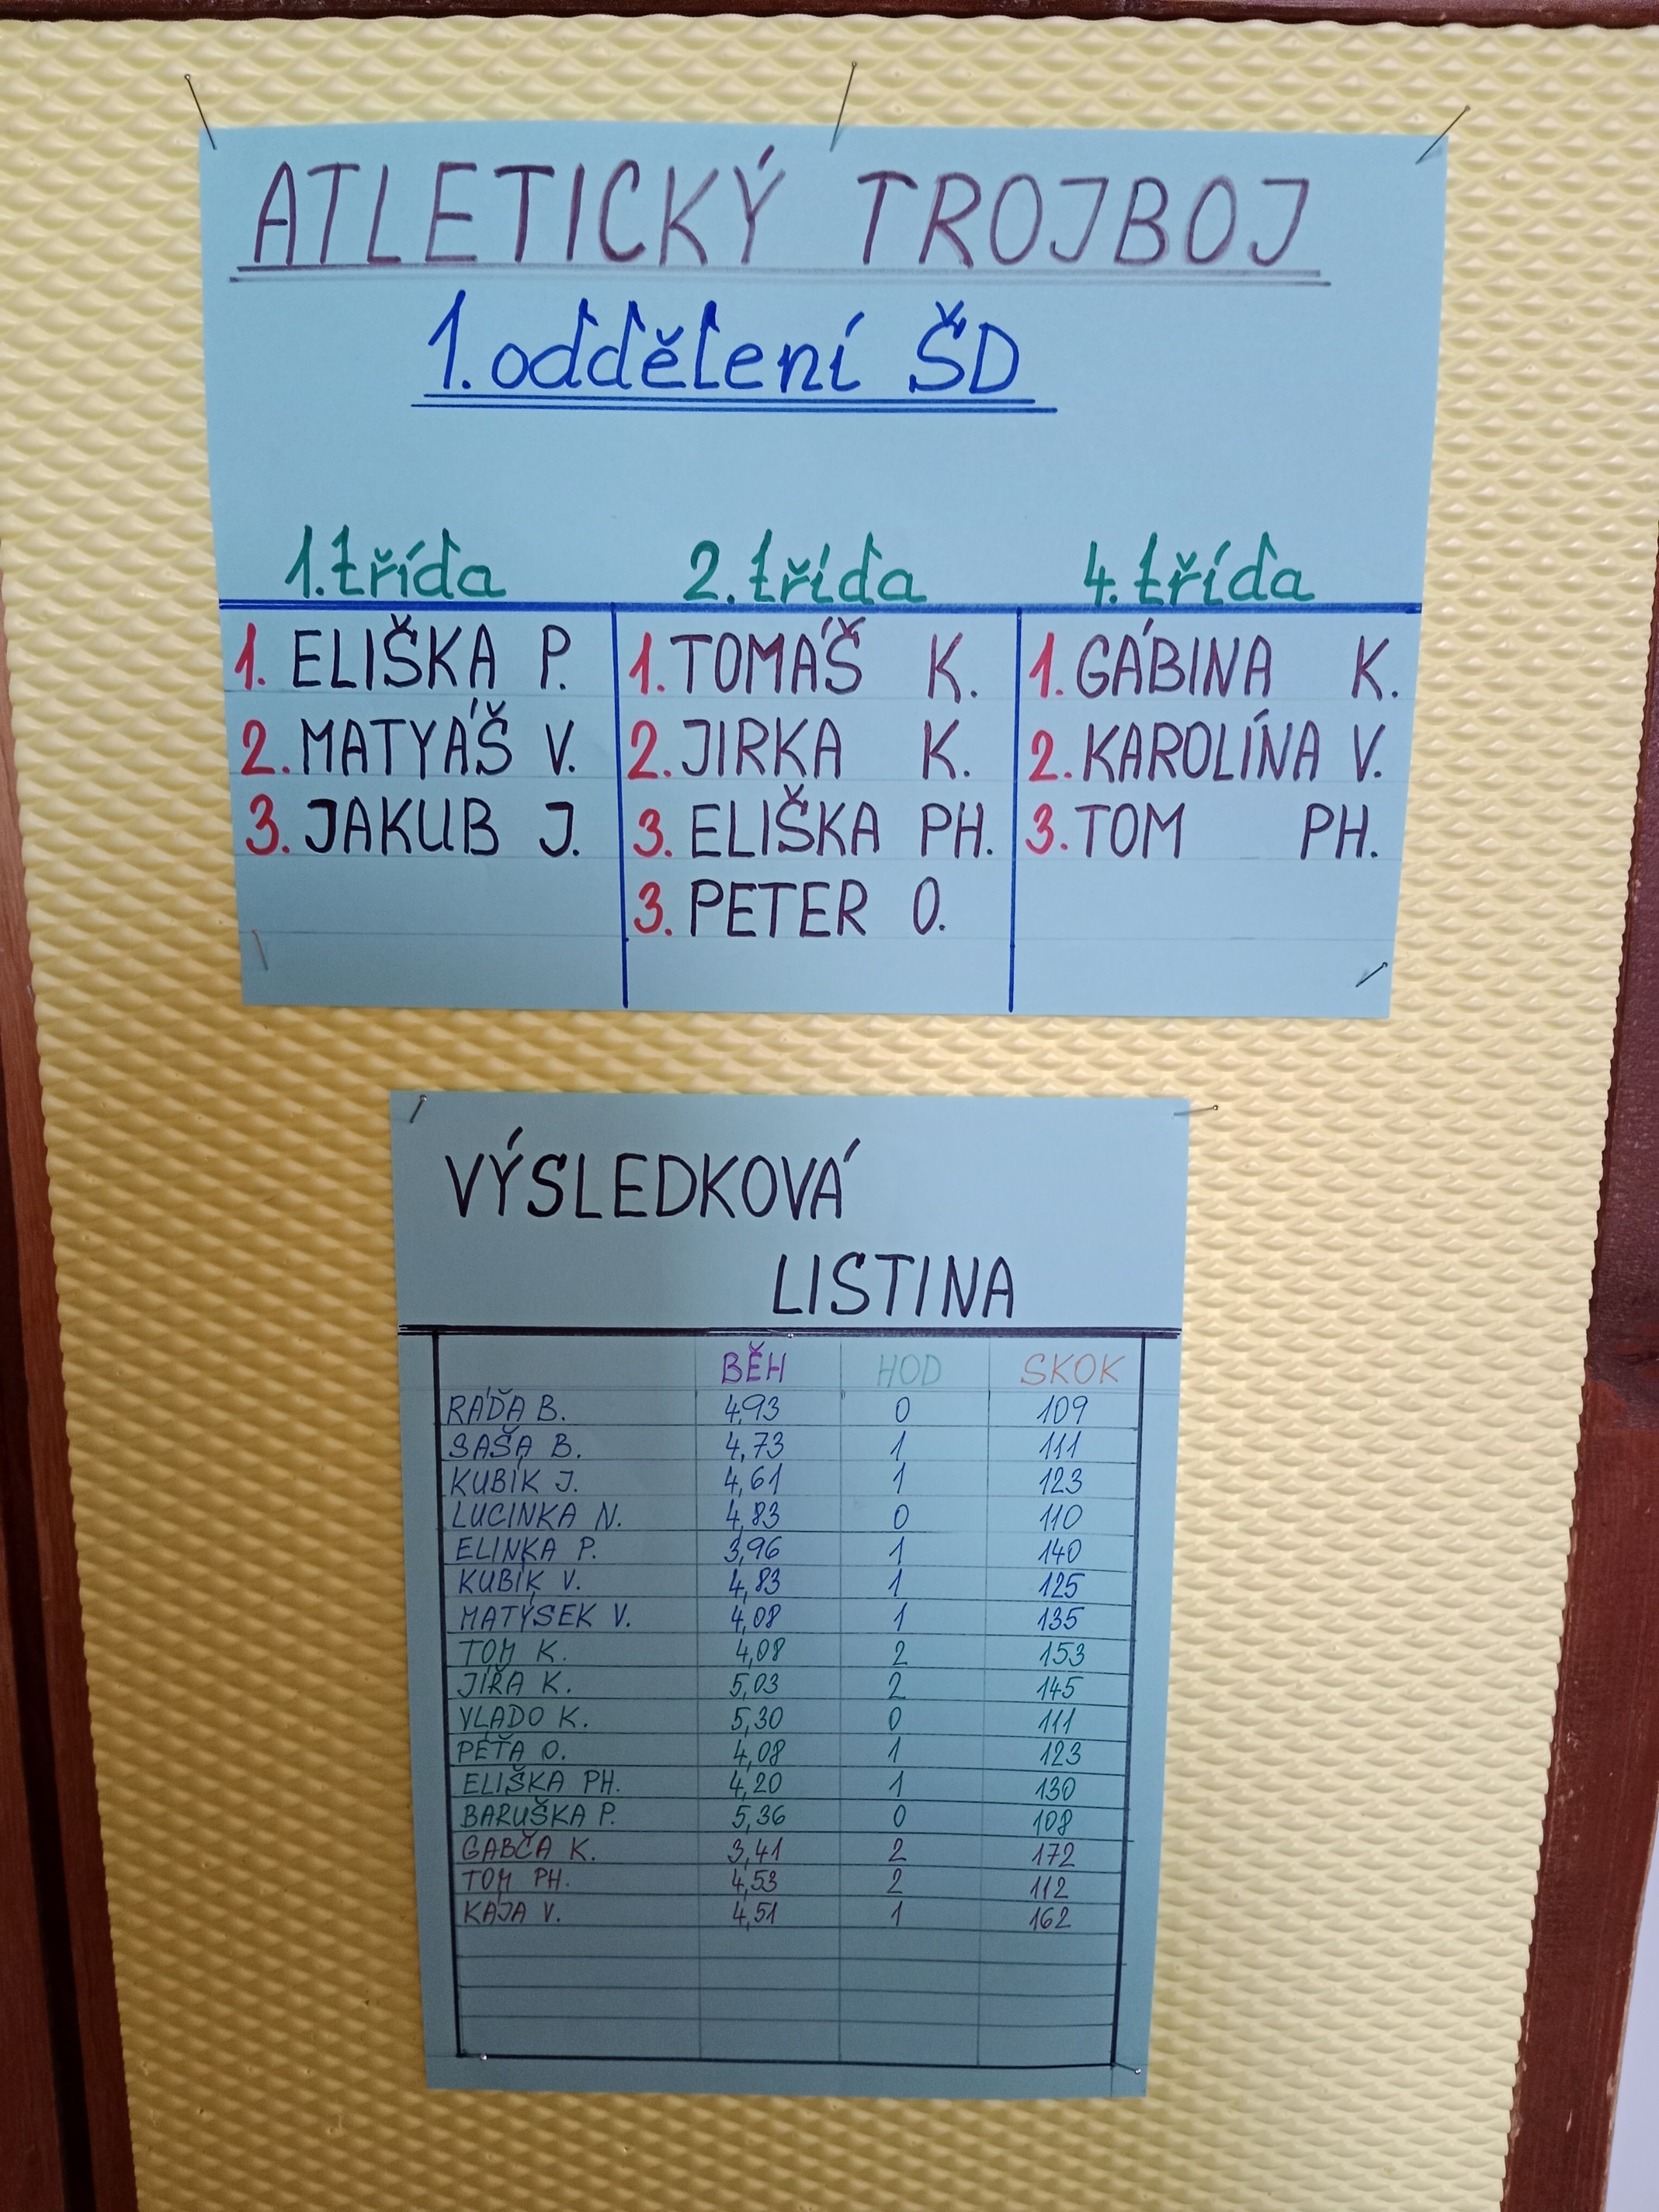 ATLETICKÝ TROJBOJ
1. oddělení ŠD
1. třída 2. třída 4. třída
1. ELIŠKA P. 1. TOMÁŠ K. 1. GÁBINA K.
2. MATYÁŠ V. 2. JIRKA K. 2. KAROLÍNA V.
3. JAKUB J. 3. ELIŠKA PH. 3. TOM PH.
3. PETER O.
VÝSLEDKOVÁ
LISTINA
BĚH HOD SKOK
RÁĎA B. 4,93 0 109
SAŠA B. 4,73 1 111
KUBÍK J. 4,61 1 123
LUCINKA N. 4,83 0 110
ELINKA P. 3,96 1 140
KUBÍK V. 4,83 1 125
MATÝSEK V. 4,08 1 135
TOM K. 4,08 2 153
JÍŘA K. 5,03 2 145
VLADO K. 5,30 0 111
PÉŤA O. 4,08 1 123
ELIŠKA PH. 4,20 1 130
BARUŠKA P. 5,36 0 108
GABČA K. 3,41 2 172
TOM PH. 4,53 2 112
KÁJA V. 4,51 1 162